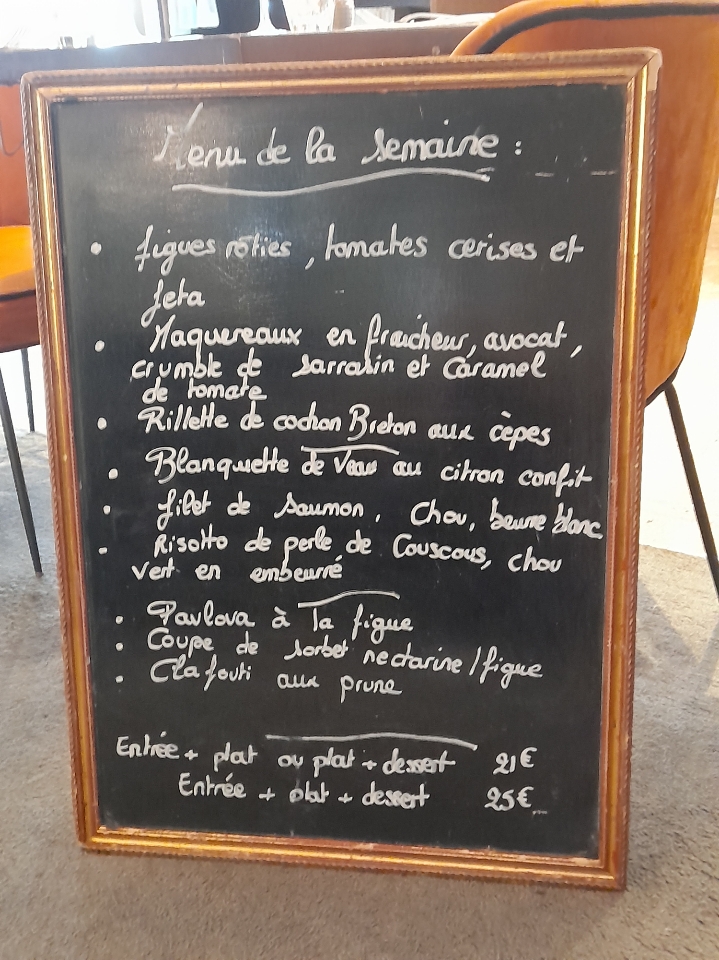 Menu de la semaine :
• figues rôties, tomates cerises et
feta
• Maquereaux en fraicheur, avocat,
crumble de sarrasin et Caramel
de tomate
• Rillette de cochon Breton aux cèpes
• Blanquette de Veau au citron confit
• filet de saumon, chou, beurre blanc
- Risotto de perle de Couscous, chou
vert en embeurré
• Pavlova à la figue
• Coupe de sorbet nectarine/figue
• Clafouti aux prune
Entrée + plat ou plat + dessert 21€
Entrée + plat + dessert 25€